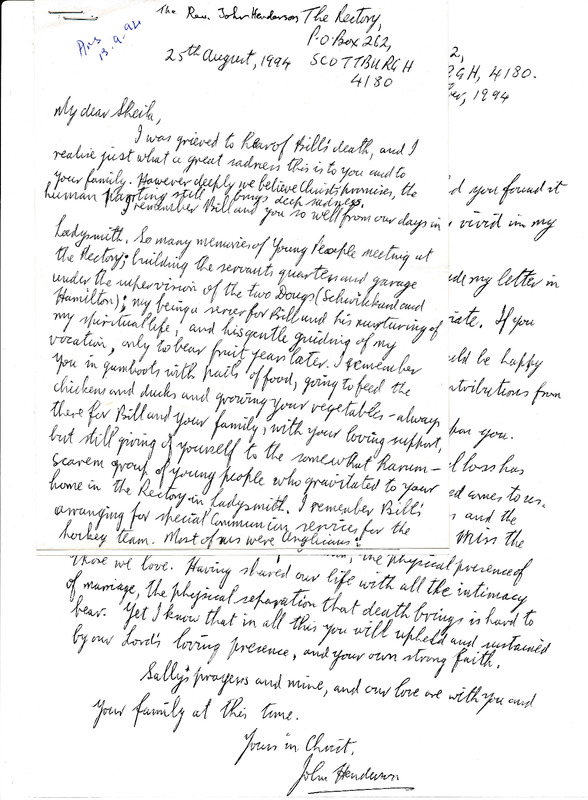 The Rev. John Henderson
The Rectory,
P.O. Box 262,
SCOTTBURGH
4180
Ans
13.9.94
25th August, 1994
My dear Sheila,
I was grieved to hear of Bill's death, and I
realise just what a great sadness this is to you and to
your family. However deeply we believe Christ's promises, the
human parting still brings deep sadness.
I remember Bill and you so well from our days in
Ladysmith. So many memories of Young People meeting at
the Rectory; building the servants quarters and garage
under the supervision of the two Dougs (Schwikkard and
Hamilton); my being a server for Bill and his nurturing of
my spiritual life, and his gentle guiding of my
vocation, only to bear fruit years later. I remember
you in gumboots with pails of food, going to feed the
chickens and ducks and growing your vegetables - always
there for Bill and your family, with your loving support,
but still giving of yourself to the somewhat harum-
scarem group of young people who gravitated to your
home in the Rectory in Ladysmith. I remember Bill's
arranging for special Communion services for the
hockey team. Most of us were Anglicans!
2,
RGH, 4180.
ber, 1994
d you found it
vivid in my
my letter in
iate. If you
uld be happy
ntributions from
you.
l loss has
ed comes to us.
s and the
miss the
the physical presence of
those we love. Having shared our life with all the intimacy
of marriage, the physical separation that death brings is hard to
bear. Yet I know that in all this you will upheld and sustained
by our Lord's loving presence, and your own strong faith.
Sally's prayers and mine, and our love are with you and
your family at this time.
Yours in Christ,
John Henderson